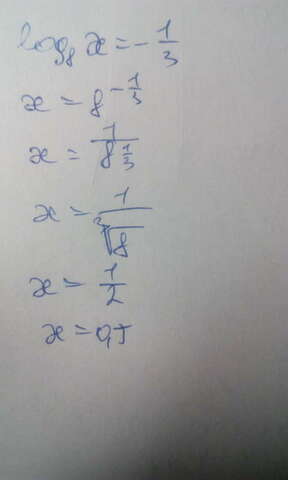 log₈ x = -1/3
x = 8^(-1/3)
x = 1/8^(1/3)
x = 1/∛8
x = 1/2
x = 0,5